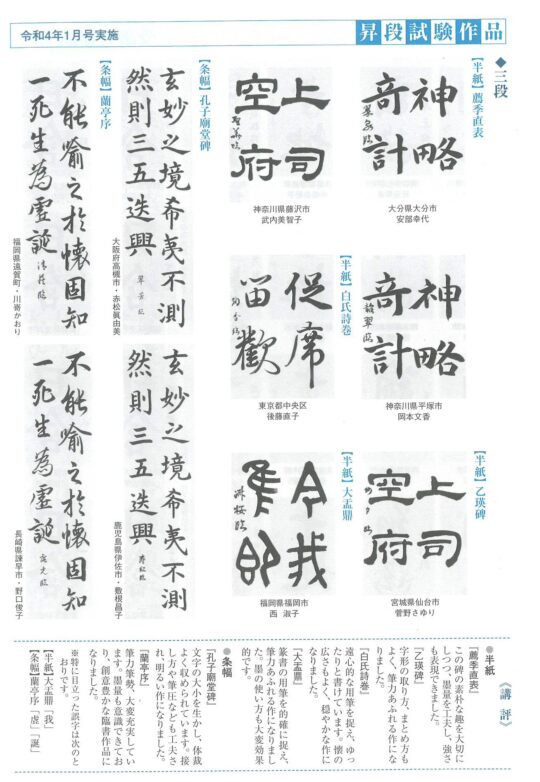 昇段試験作品
令和4年1月号実施
◆三段
【半紙】薦季直表
神略
奇計
大分県大分市
安部幸代
神略
奇計
神奈川県平塚市
岡本文香
【半紙】乙瑛碑
上司
空府
宮城県仙台市
菅野さゆり
上司
空府
神奈川県藤沢市
武内美智子
【半紙】白氏詩巻
促席
留歡
東京都中央区
後藤直子
【半紙】大盂鼎
令我
隹
福岡県福岡市
西 淑子
【条幅】孔子廟堂碑
玄妙之境希夷不測
然則三五迭興
大阪府高槻市・赤松眞由美
玄妙之境希夷不測
然則三五迭興
鹿児島県伊佐市・敷根昌子
【条幅】蘭亭序
不能喩之於懷固知
一死生為虚誕
福岡県遠賀町・川嵜かおり
不能喩之於懷固知
一死生為虚誕
長崎県諫早市・野口俊子
《講評》
●半紙
「薦季直表」
この碑の素朴な趣を大切に
しつつ、墨量を工夫し、強さ
も表現できました。
「乙瑛碑」
字形の取り方、まとめ方も
よく、筆力あふれる作にな
りました。
「白氏詩巻」
遠心的な用筆を捉え、ゆっ
たりと書けています。懐の
広さもよく、穏やかな作に
なりました。
「大盂鼎」
篆書の用筆を的確に捉え、
筆力あふれる作になりまし
た。墨の使い方も大変効果
的です。
●条幅
「孔子廟堂碑」
文字の大小を生かし、体裁
よく収められています。接
し方や筆圧なども工夫さ
れ、明るい作になりました。
「蘭亭序」
筆力筆勢、大変充実してい
ます。墨量も意識できてお
り、創意豊かな臨書作品に
なりました。
※特に目立った誤字は次のと
おりです。
【半紙】大盂鼎「我」
【条幅】蘭亭序「虚」「誕」